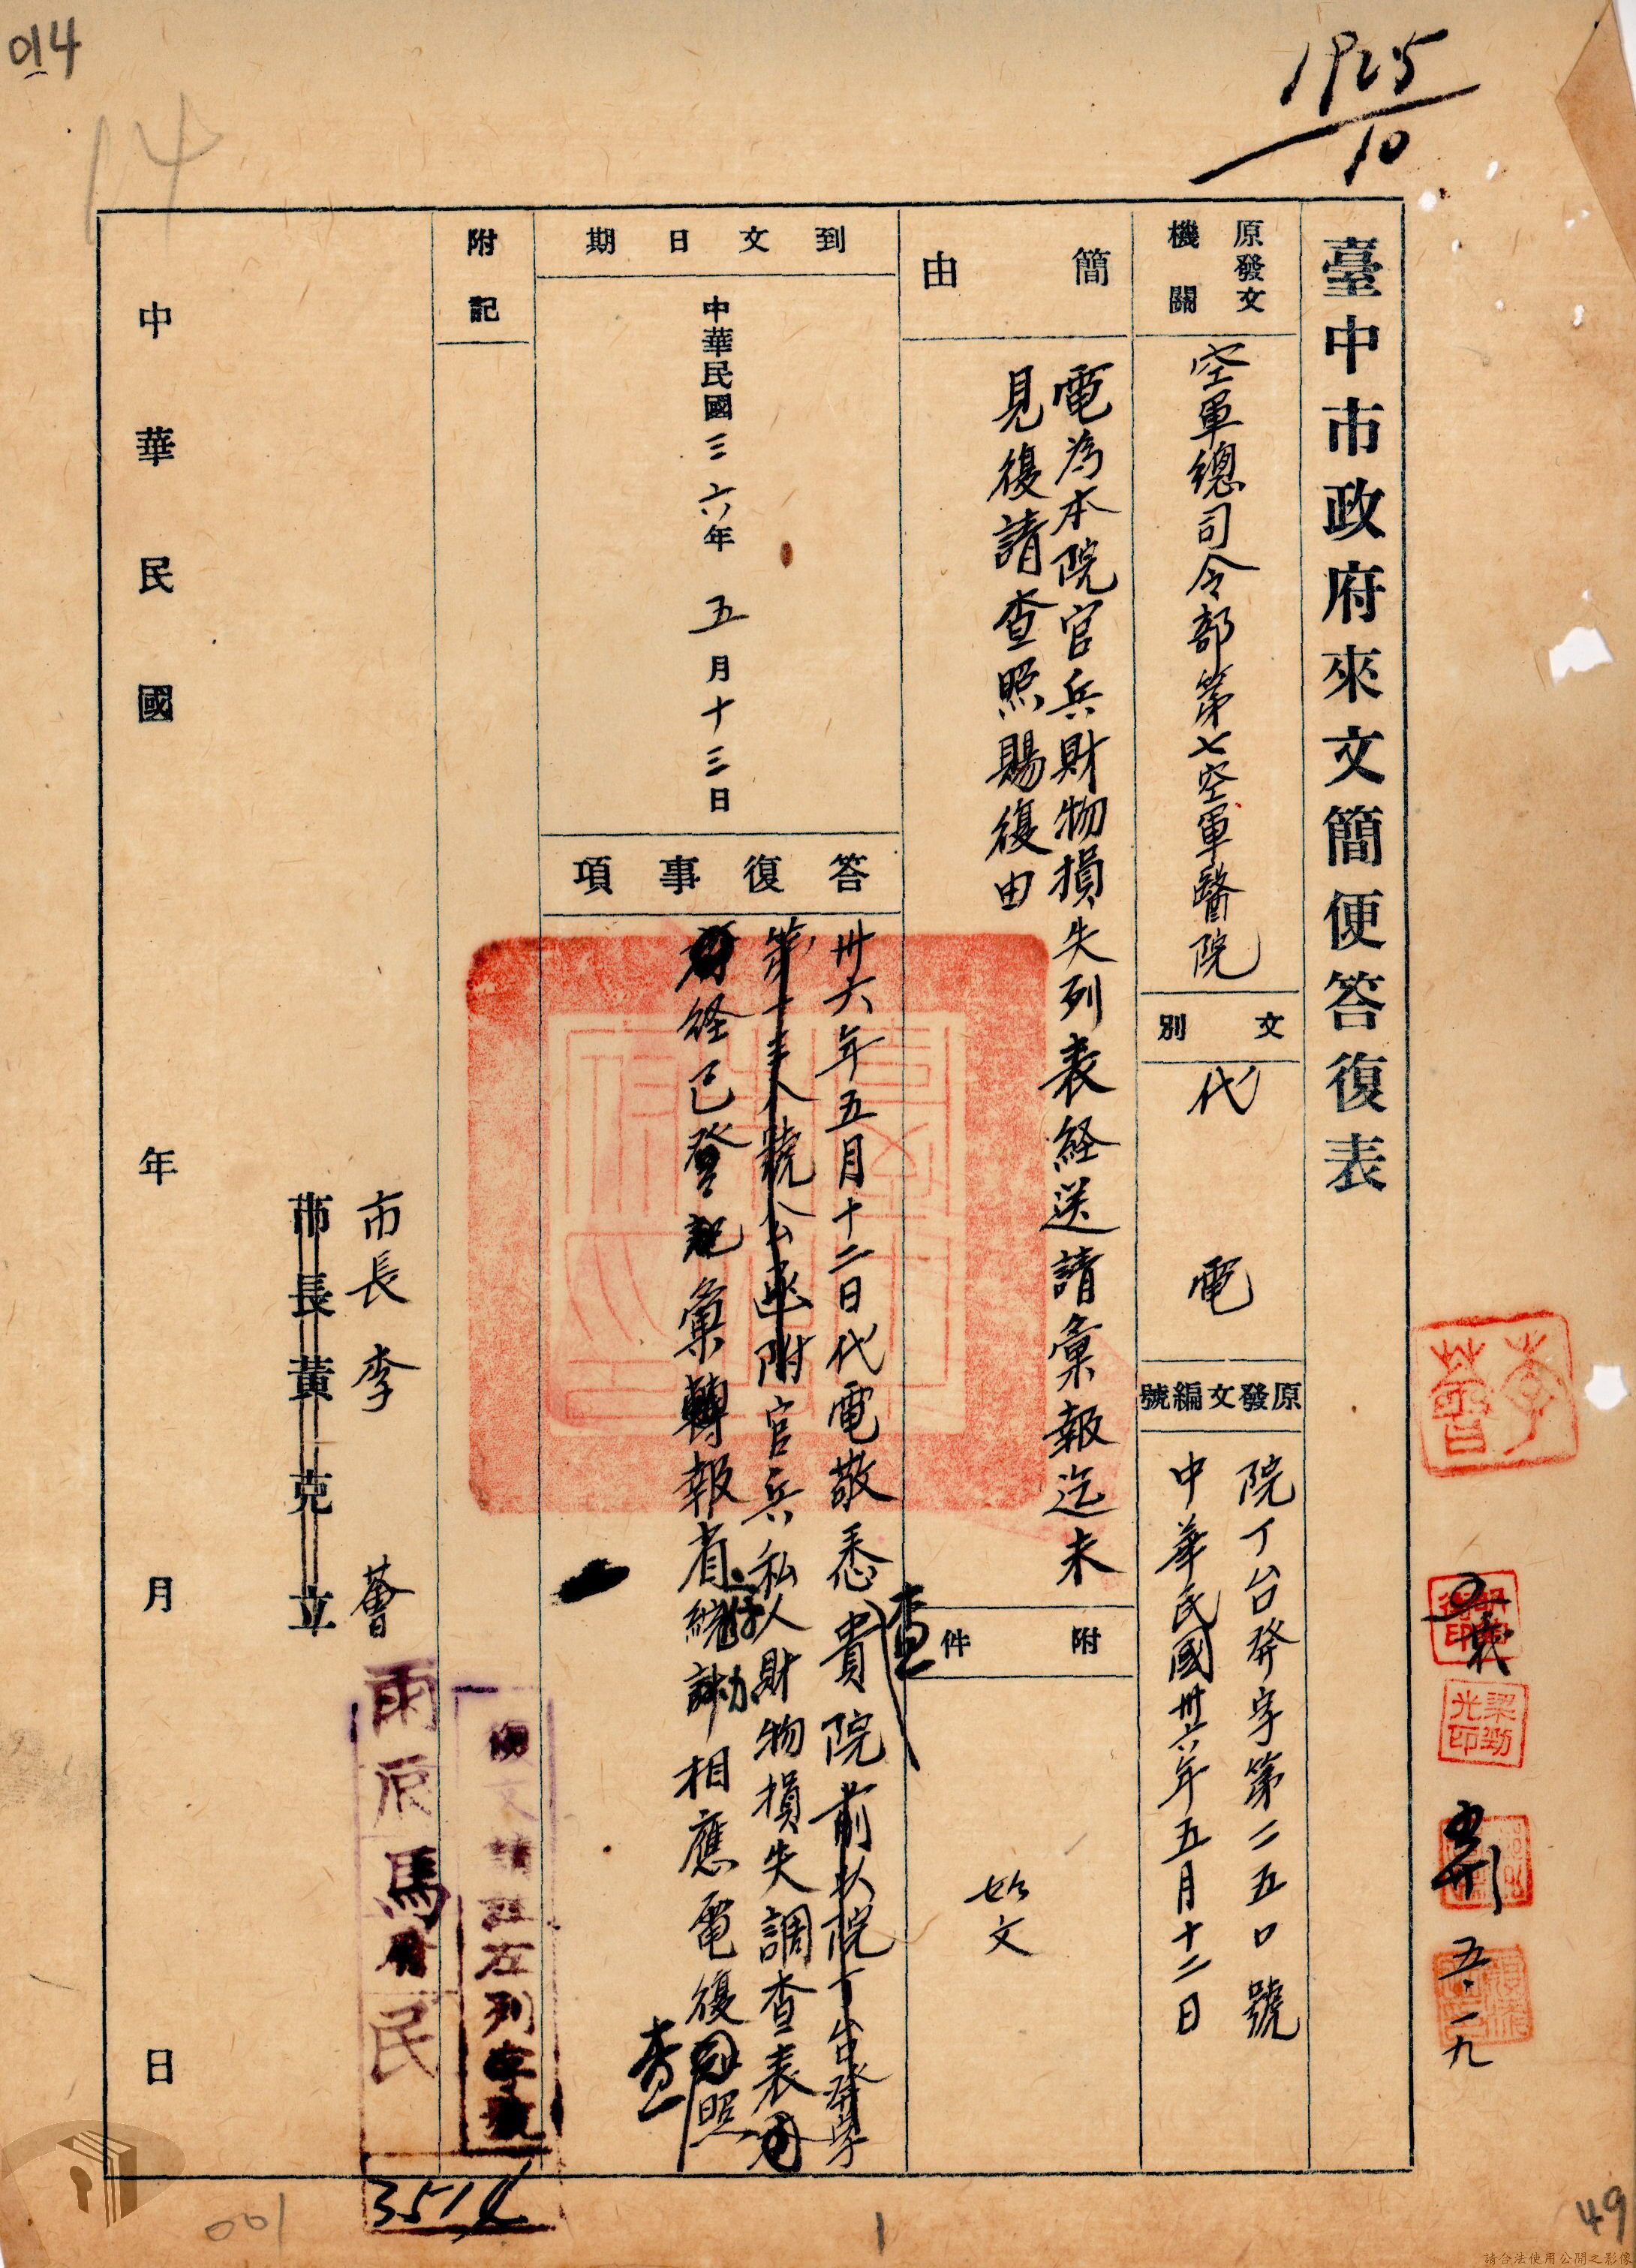 014
14
1925
10
臺中市政府來文簡便答復表
原發文
機關
空軍總司令部第七空軍醫院
文別
代電
原發文編號
院丁台發字第二五〇號
中華民國卅六年五月十二日
簡由
電為本院官兵財物損失列表経送請彙報迄未
見復請查照賜復由
附件
如文
到文日期
中華民國三六年五月十三日
答復事項
卅六年五月十二日代電敬悉貴院前以院丁台發字
第十號公函附官兵私人財物損失調查表
経已登記彙轉報省統相應電復照
查
查
附記
市長李薈
市長黃克立
中華民國 年 月 日
復文請註左列字號
雨辰馬府民
3514
李薈
梁勁光印
五.一九
001
1
49
請合法使用公開之影像